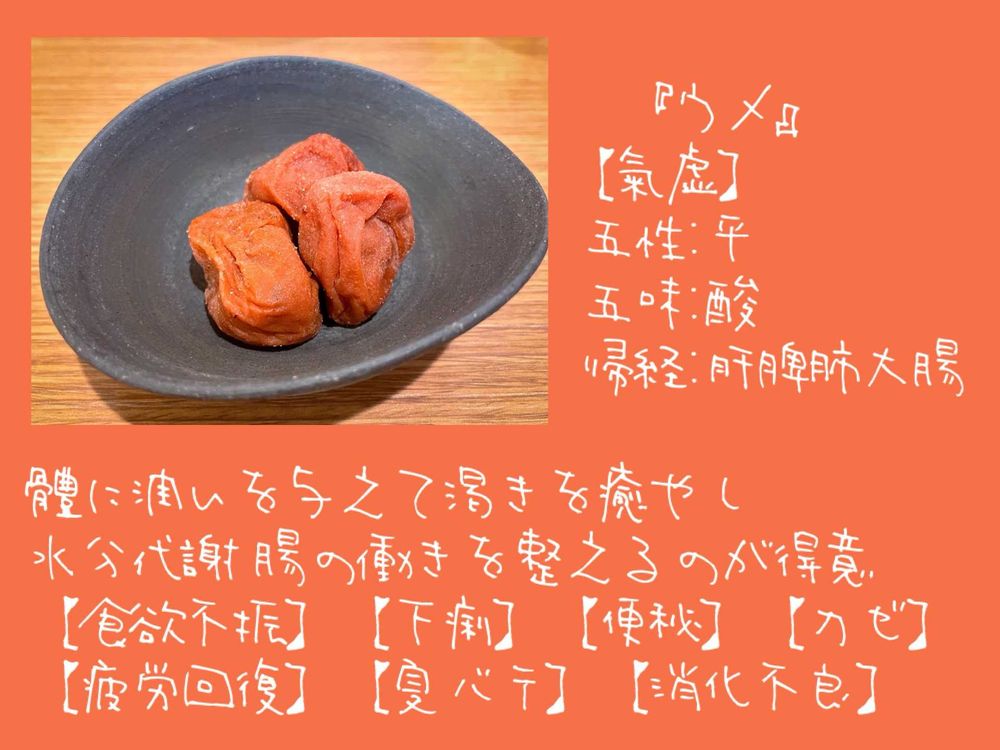 『ウメ』
【氣虚】
五性:平
五味:酸
帰経:肝脾肺大腸
體に潤いを与えて渇きを癒やし
水分代謝腸の働きを整えるのが得意
【食欲不振】 【下痢】 【便秘】 【カゼ】
【疲労回復】 【夏バテ】 【消化不良】